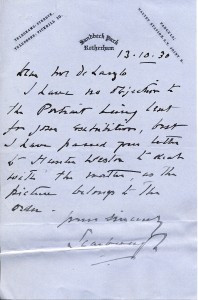 TELEGRAMS: TICKHILL.
TELEPHONE: TICKHILL 20.
Sandbeck Park
Rotherham
PARCELS:
13-10-30
Dear Mr De Laszlo
I have no objection to
the Portrait being lent
for your Exhibition, but
I have passed your letter
to Hunter Weston to deal
with the matter, as the
picture belongs to the
order.
yours sincerely
Scarbrough